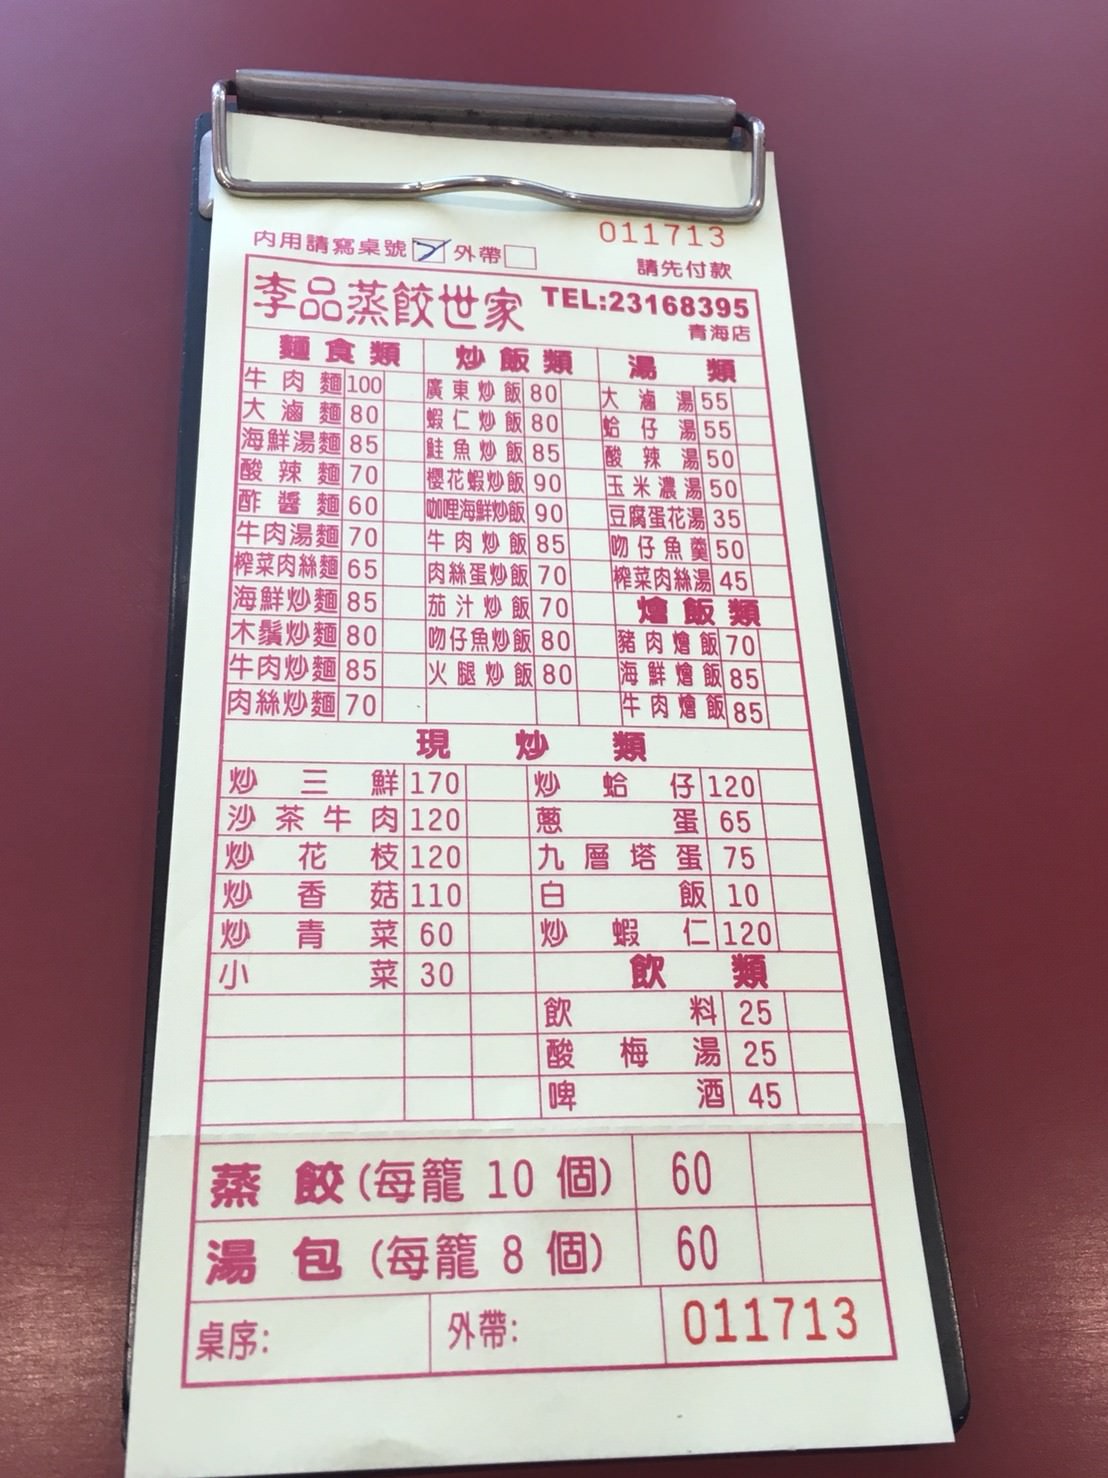 011713
內用請寫桌號 外帶 請先付款
李品蒸餃世家 TEL:23168395
青海店
麵食類 炒飯類 湯類
牛肉麵 100 廣東炒飯 80 大滷湯 55
大滷麵 80 蝦仁炒飯 80 蛤仔湯 55
海鮮湯麵 85 鮭魚炒飯 85 酸辣湯 50
酸辣麵 70 櫻花蝦炒飯 90 玉米濃湯 50
酢醬麵 60 咖哩海鮮炒飯 90 豆腐蛋花湯 35
牛肉湯麵 70 牛肉炒飯 85 吻仔魚羹 50
榨菜肉絲麵 65 肉絲蛋炒飯 70 榨菜肉絲湯 45
海鮮炒麵 85 茄汁炒飯 70 燴飯類
木鬚炒麵 80 吻仔魚炒飯 80 豬肉燴飯 70
牛肉炒麵 85 火腿炒飯 80 海鮮燴飯 85
肉絲炒麵 70 牛肉燴飯 85
現炒類
炒三鮮 170 炒蛤仔 120
沙茶牛肉 120 蔥蛋 65
炒花枝 120 九層塔蛋 75
炒香菇 110 白飯 10
炒青菜 60 炒蝦仁 120
小菜 30 飲類
飲料 25
酸梅湯 25
啤酒 45
蒸餃(每籠 10 個) 60
湯包(每籠 8 個) 60
桌序: 外帶: 011713